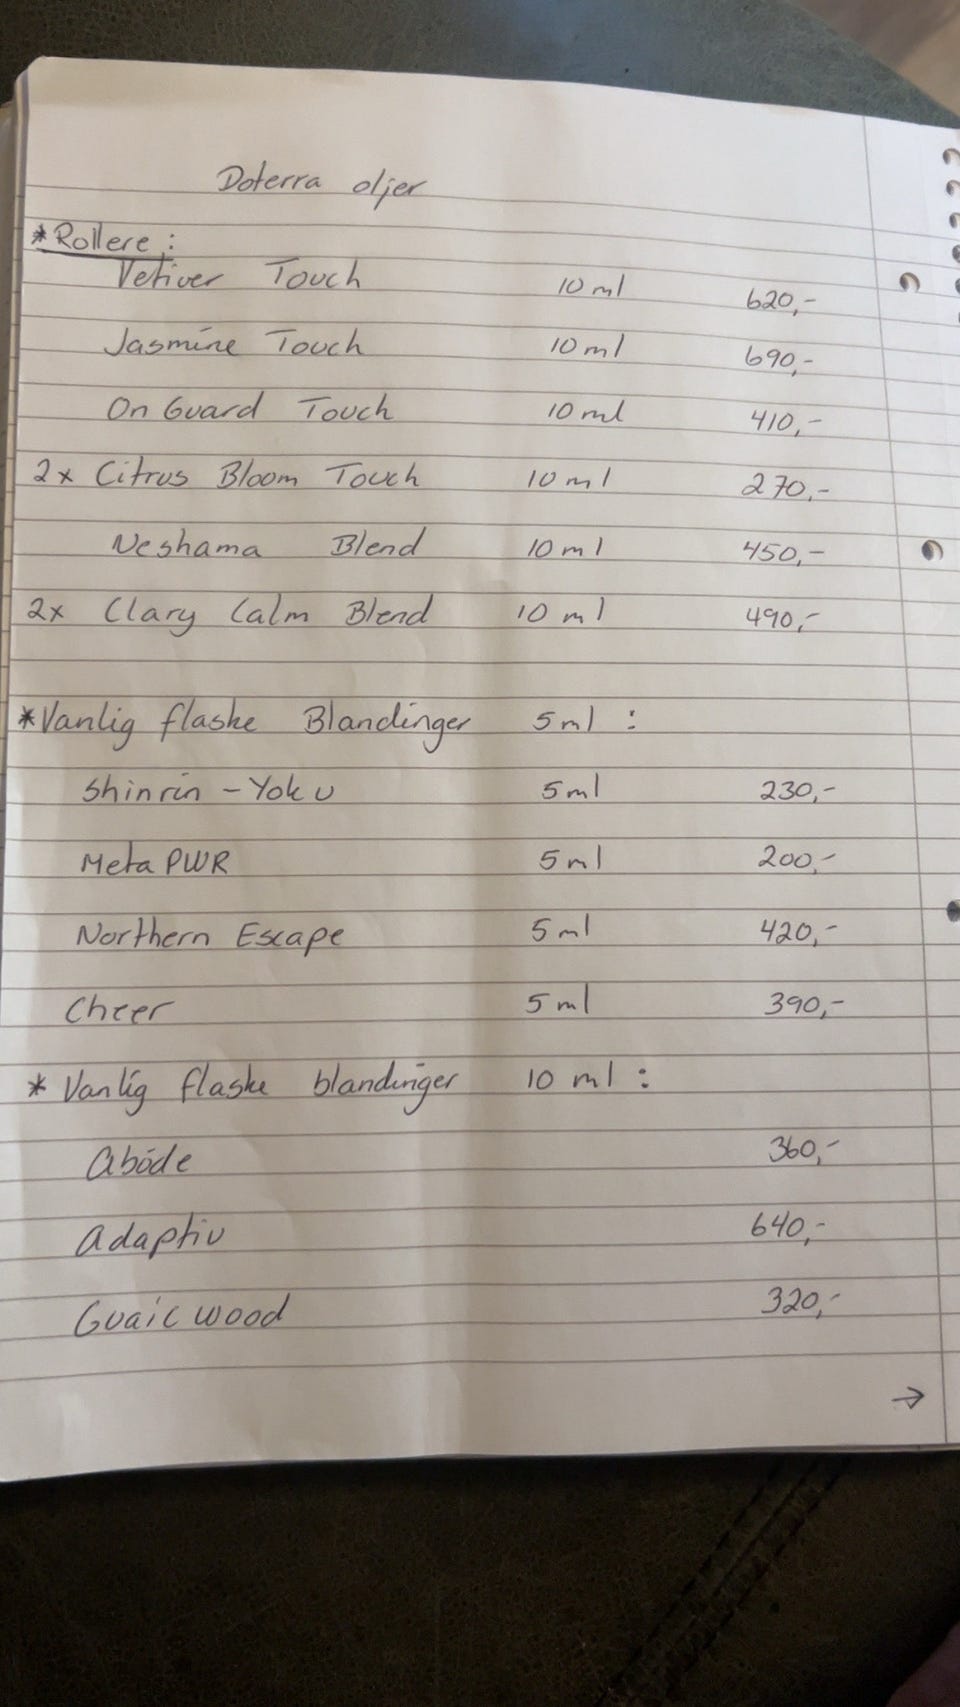 Doterra oljer
* Rollere :
Vetiver Touch 10 ml 620,-
Jasmine Touch 10 ml 690,-
On Guard Touch 10 ml 410,-
2x Citrus Bloom Touch 10 ml 270,-
Neshama Blend 10 ml 450,-
2x Clary Calm Blend 10 ml 490,-
* Vanlig flaske Blandinger 5 ml :
Shinrin - Yoku 5 ml 230,-
Meta PWR 5 ml 200,-
Northern Escape 5 ml 420,-
Cheer 5 ml 390,-
* Vanlig flaske blandinger 10 ml :
Abode 360,-
Adaptiv 640,-
Guaic wood 320,-
→